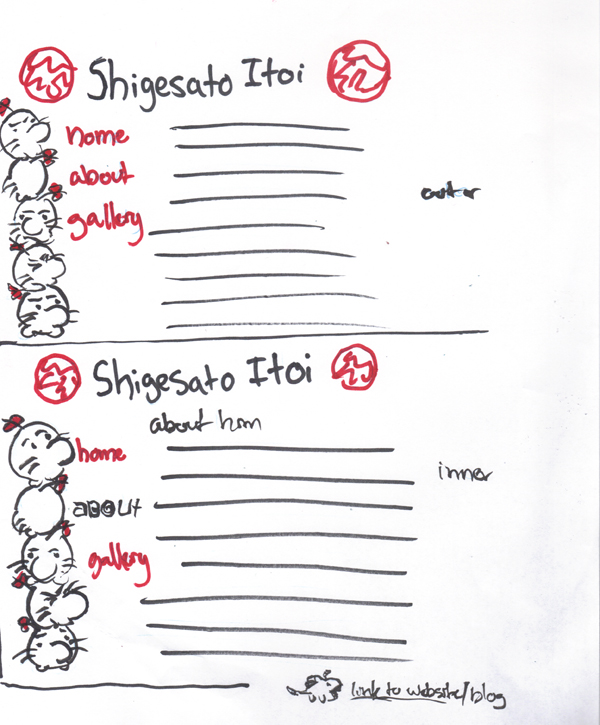 Shigesato Itoi
home
about
gallery
outer
Shigesato Itoi
about him
home
inner
ABOUT
gallery
link to website/blog